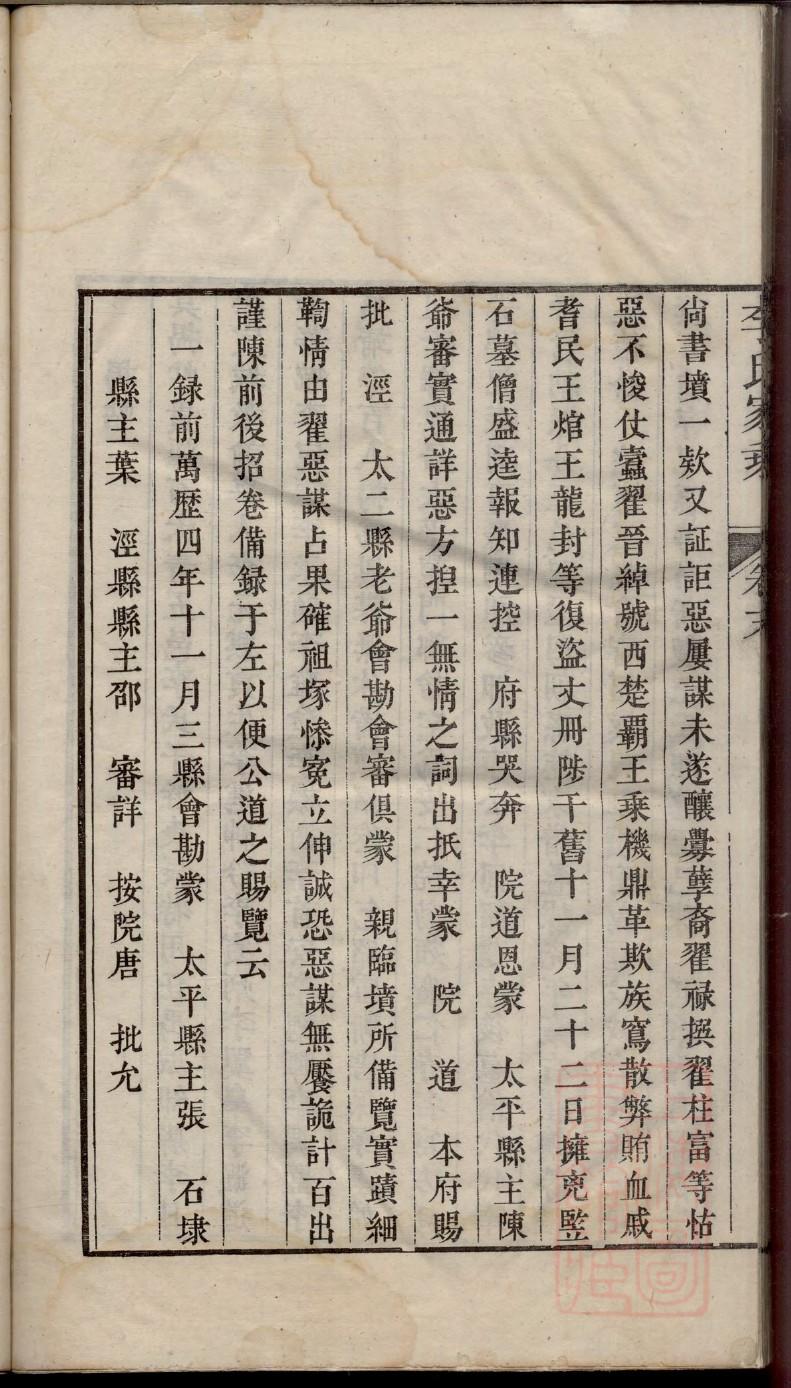 李氏家乘 卷六
尙書墳一欵又証詎惡屢謀未遂釀釁孽裔翟祿撰翟柱富等怙
惡不悛仗蠹翟晉綽號西楚霸王乘機鼎革欺族窵散弊賄血戚
耆民王婠王龍封等復盜丈冊陟干舊十一月二十二日擁兇監
石墓僧盛逵報知連控 府縣哭奔 院道恩蒙 太平縣主陳
爺審實通詳惡方揑一無情之詞出抵幸蒙 院 道 本府賜
批 涇 太二縣老爺會勘會審俱蒙 親臨墳所備覽實蹟細
鞫情由翟惡謀占果確祖塚慘寃立伸誠恐惡謀無饜詭計百出
謹陳前後招卷備録于左以便公道之賜覽云
一録前萬歷四年十一月三縣會勘蒙 太平縣主張 石埭
縣主葉 涇縣縣主邵 審詳 按院唐 批允